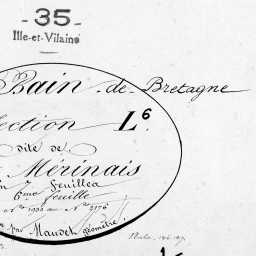 - 35 -
Ille-et-Vilaine
Bain - de - Bretagne
ection L 6.
dite de
Mérinais
7 feuilles
6me feuille
par Maudet géomètre